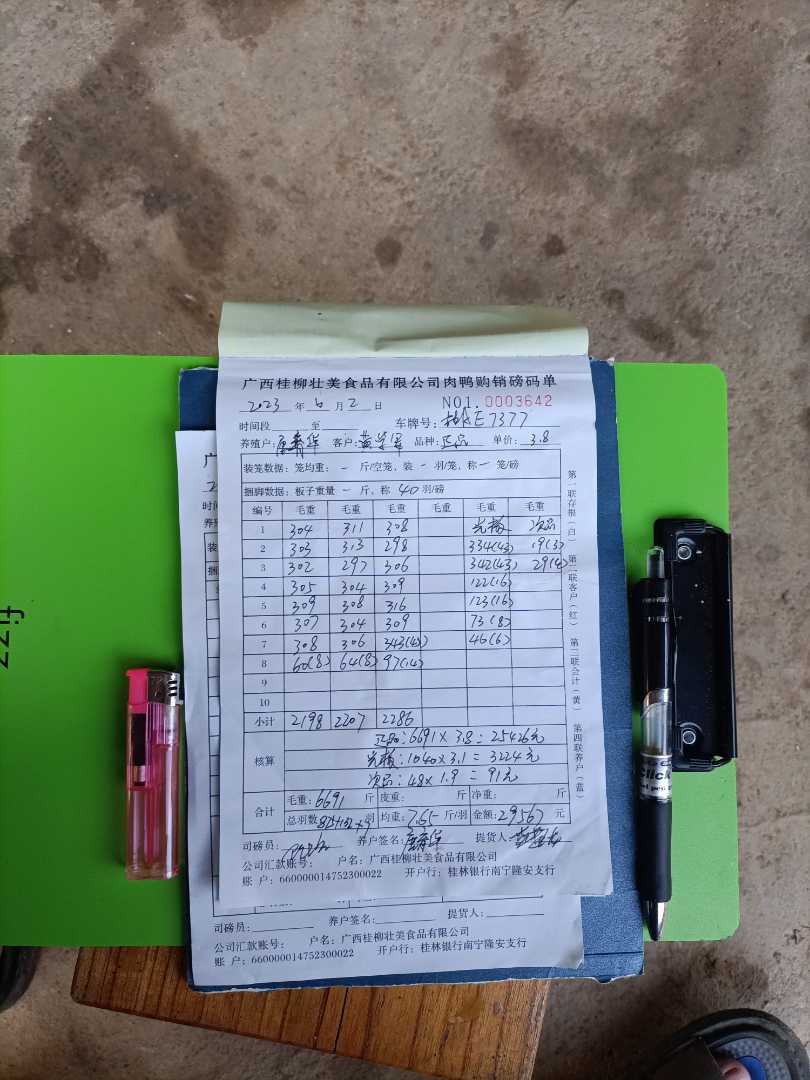 广西桂柳壮美食品有限公司肉鸭购销磅码单
2023 年 6 月 2 日 NO1. 0003642
时间段 至 车牌号: E7377
养殖户: 客户: 品种: 正品 单价: 3.8
装笼数据: 笼均重: - 斤/空笼, 装 - 羽/笼, 称 - 笼/磅
捆脚数据: 板子重量 - 斤, 称 40 羽/磅
编号 毛重 毛重 毛重 毛重 毛重 毛重
1 304 311 308 次品
2 303 313 298 334(43) 19(3)
3 302 297 306 342(43) 29(4)
4 305 304 309 122(16)
5 309 308 316 123(16)
6 307 304 309 73(8)
7 308 306 343(45) 46(6)
8 60(8) 64(8) 97(14)
9
10
小计 2198 2207 2286
核算 正品: 6691 × 3.8 = 25426元
1040 × 3.1 = 3224元
次品: 48 × 1.9 = 91元
合计 毛重: 6691 斤 皮重: 斤 净重: 斤
总羽数 羽 均重: 7.65 斤/羽 金额: 29567 元
司磅员: 养户签名: 提货人:
公司汇款账号: 户名: 广西桂柳壮美食品有限公司
账 户: 660000014752300022 开户行: 桂林银行南宁隆安支行
第一联存根(白) 第二联客户(红) 第三联会计(黄) 第四联养户(蓝)
司磅员: 养户签名: 提货人:
公司汇款账号: 户名: 广西桂柳壮美食品有限公司
账 户: 660000014752300022 开户行: 桂林银行南宁隆安支行
fizz
Click